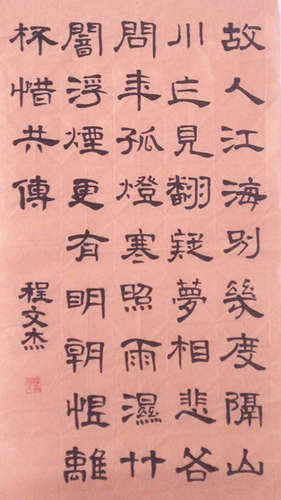 故人江海別幾度隔山
川乍見翻疑夢相悲各
問年孤燈寒照雨濕竹
闇浮煙更有明朝恨離
杯惜共傳
程文杰